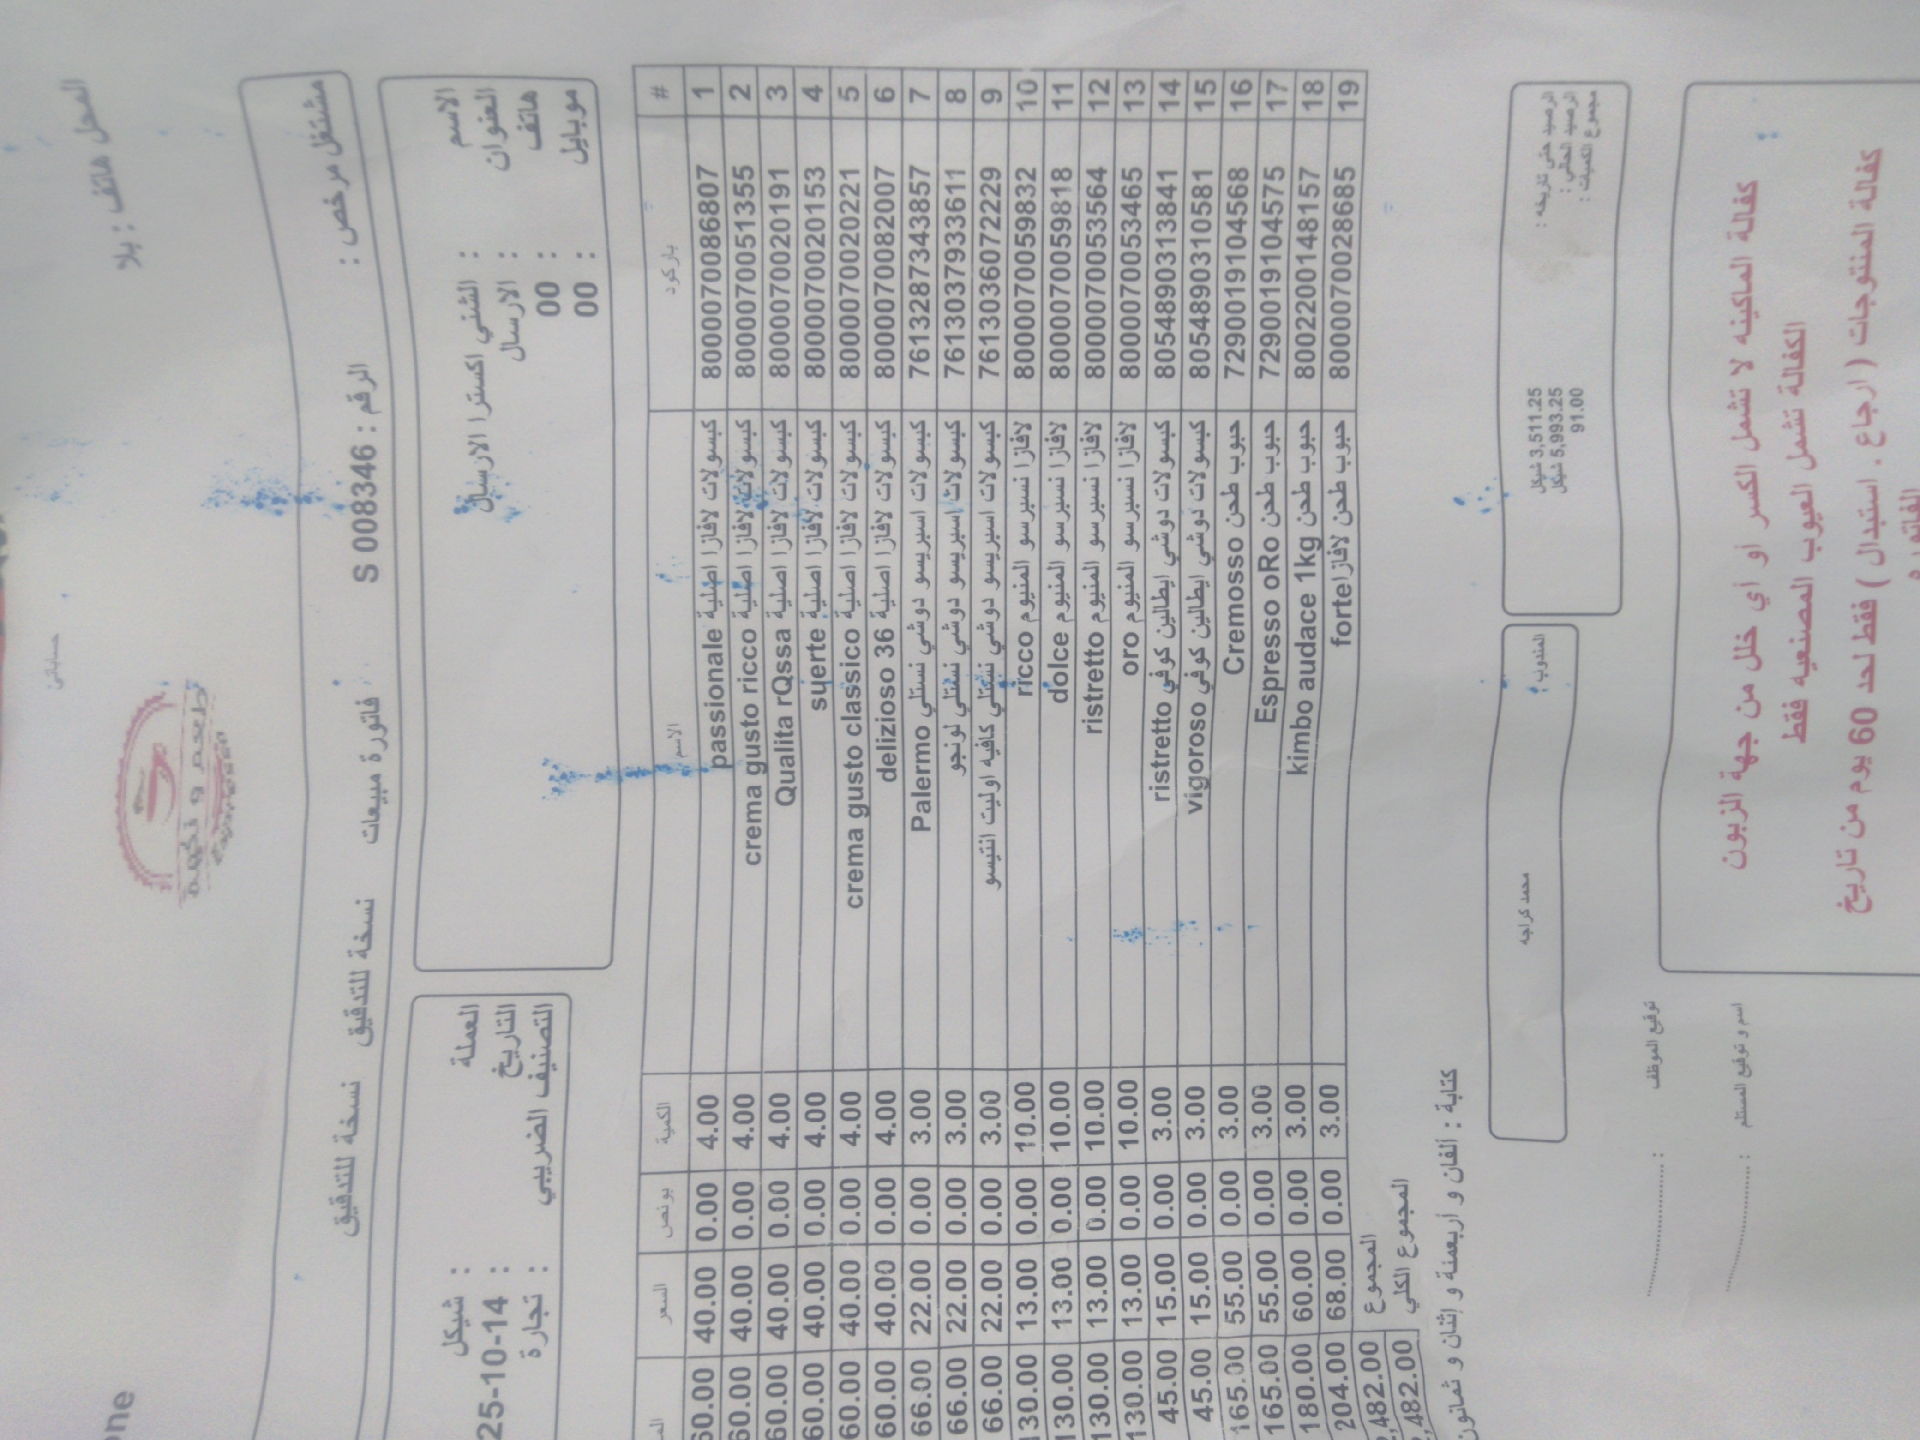 المحل هاتف : بلا
حساباتي
طعم و نكهة
one
مشتغل مرخص :
الرقم : S 008346
فاتورة مبيعات
نسخة للتدقيق
نسخة للتدقيق
الاسم : الشني اكسترا الارسال
العنوان : الارسال
هاتف : 00
موبايل : 00
العملة : شيكل
التاريخ : 25-10-14
التصنيف الضريبي : تجارة
# باركود الاسم الكمية بونص السعر
1 8000070086807 كبسولات لافازا اصلية passionale 4.00 0.00 40.00 60.00
2 8000070051355 كبسولات لافازا اصلية crema gusto ricco 4.00 0.00 40.00 60.00
3 8000070020191 كبسولات لافازا اصلية Qualita rQssa 4.00 0.00 40.00 60.00
4 8000070020153 كبسولات لافازا اصلية suerte 4.00 0.00 40.00 60.00
5 8000070020221 كبسولات لافازا اصلية crema gusto classico 4.00 0.00 40.00 60.00
6 8000070082007 كبسولات لافازا اصلية delizioso 36 4.00 0.00 40.00 60.00
7 7613287343857 كبسولات اسبريسو دوشي نستلي Palermo 3.00 0.00 22.00 66.00
8 7613037933611 كبسولات اسبريسو دوشي نستلي لونجو 3.00 0.00 22.00 66.00
9 7613036072229 كبسولات اسبريسو دوشي نستلي كافيه اوليت انتيسو 3.00 0.00 22.00 66.00
10 8000070059832 لافازا نسبرسو المنيوم ricco 10.00 0.00 13.00 130.00
11 8000070059818 لافازا نسبرسو المنيوم dolce 10.00 0.00 13.00 130.00
12 8000070053564 لافازا نسبرسو المنيوم ristretto 10.00 0.00 13.00 130.00
13 8000070053465 لافازا نسبرسو المنيوم oro 10.00 0.00 13.00 130.00
14 8054890313841 كبسولات دوشي ايطالين كوفي ristretto 3.00 0.00 15.00 45.00
15 8054890310581 كبسولات دوشي ايطالين كوفي vigoroso 3.00 0.00 15.00 45.00
16 7290019104568 حبوب طحن Cremosso 3.00 0.00 55.00 165.00
17 7290019104575 حبوب طحن Espresso oRo 3.00 0.00 55.00 165.00
18 8002200148157 حبوب طحن kimbo audace 1kg 3.00 0.00 60.00 180.00
19 8000070028685 حبوب طحن لافازا forte 3.00 0.00 68.00 204.00
المجموع 2,482.00
المجموع الكلي 2,482.00
كتابة : الفان و أربعمئة و إثنان و ثمانون
الرصيد حتى تاريخه : 3,511.25 شيكل
الرصيد الحالي : 5,993.25 شيكل
مجموع الكميات : 91.00
المندوب : محمد كراجه
توقيع الموظف : ....................
اسم و توقيع المستلم : ....................
كفالة الماكينه لا تشمل الكسر أو أي خلل من جهة الزبون
الكفالة تشمل العيوب المصنعيه فقط
كفالة المنتوجات ( ارجاع . استبدال ) فقط لحد 60 يوم من تاريخ
الفاتورة